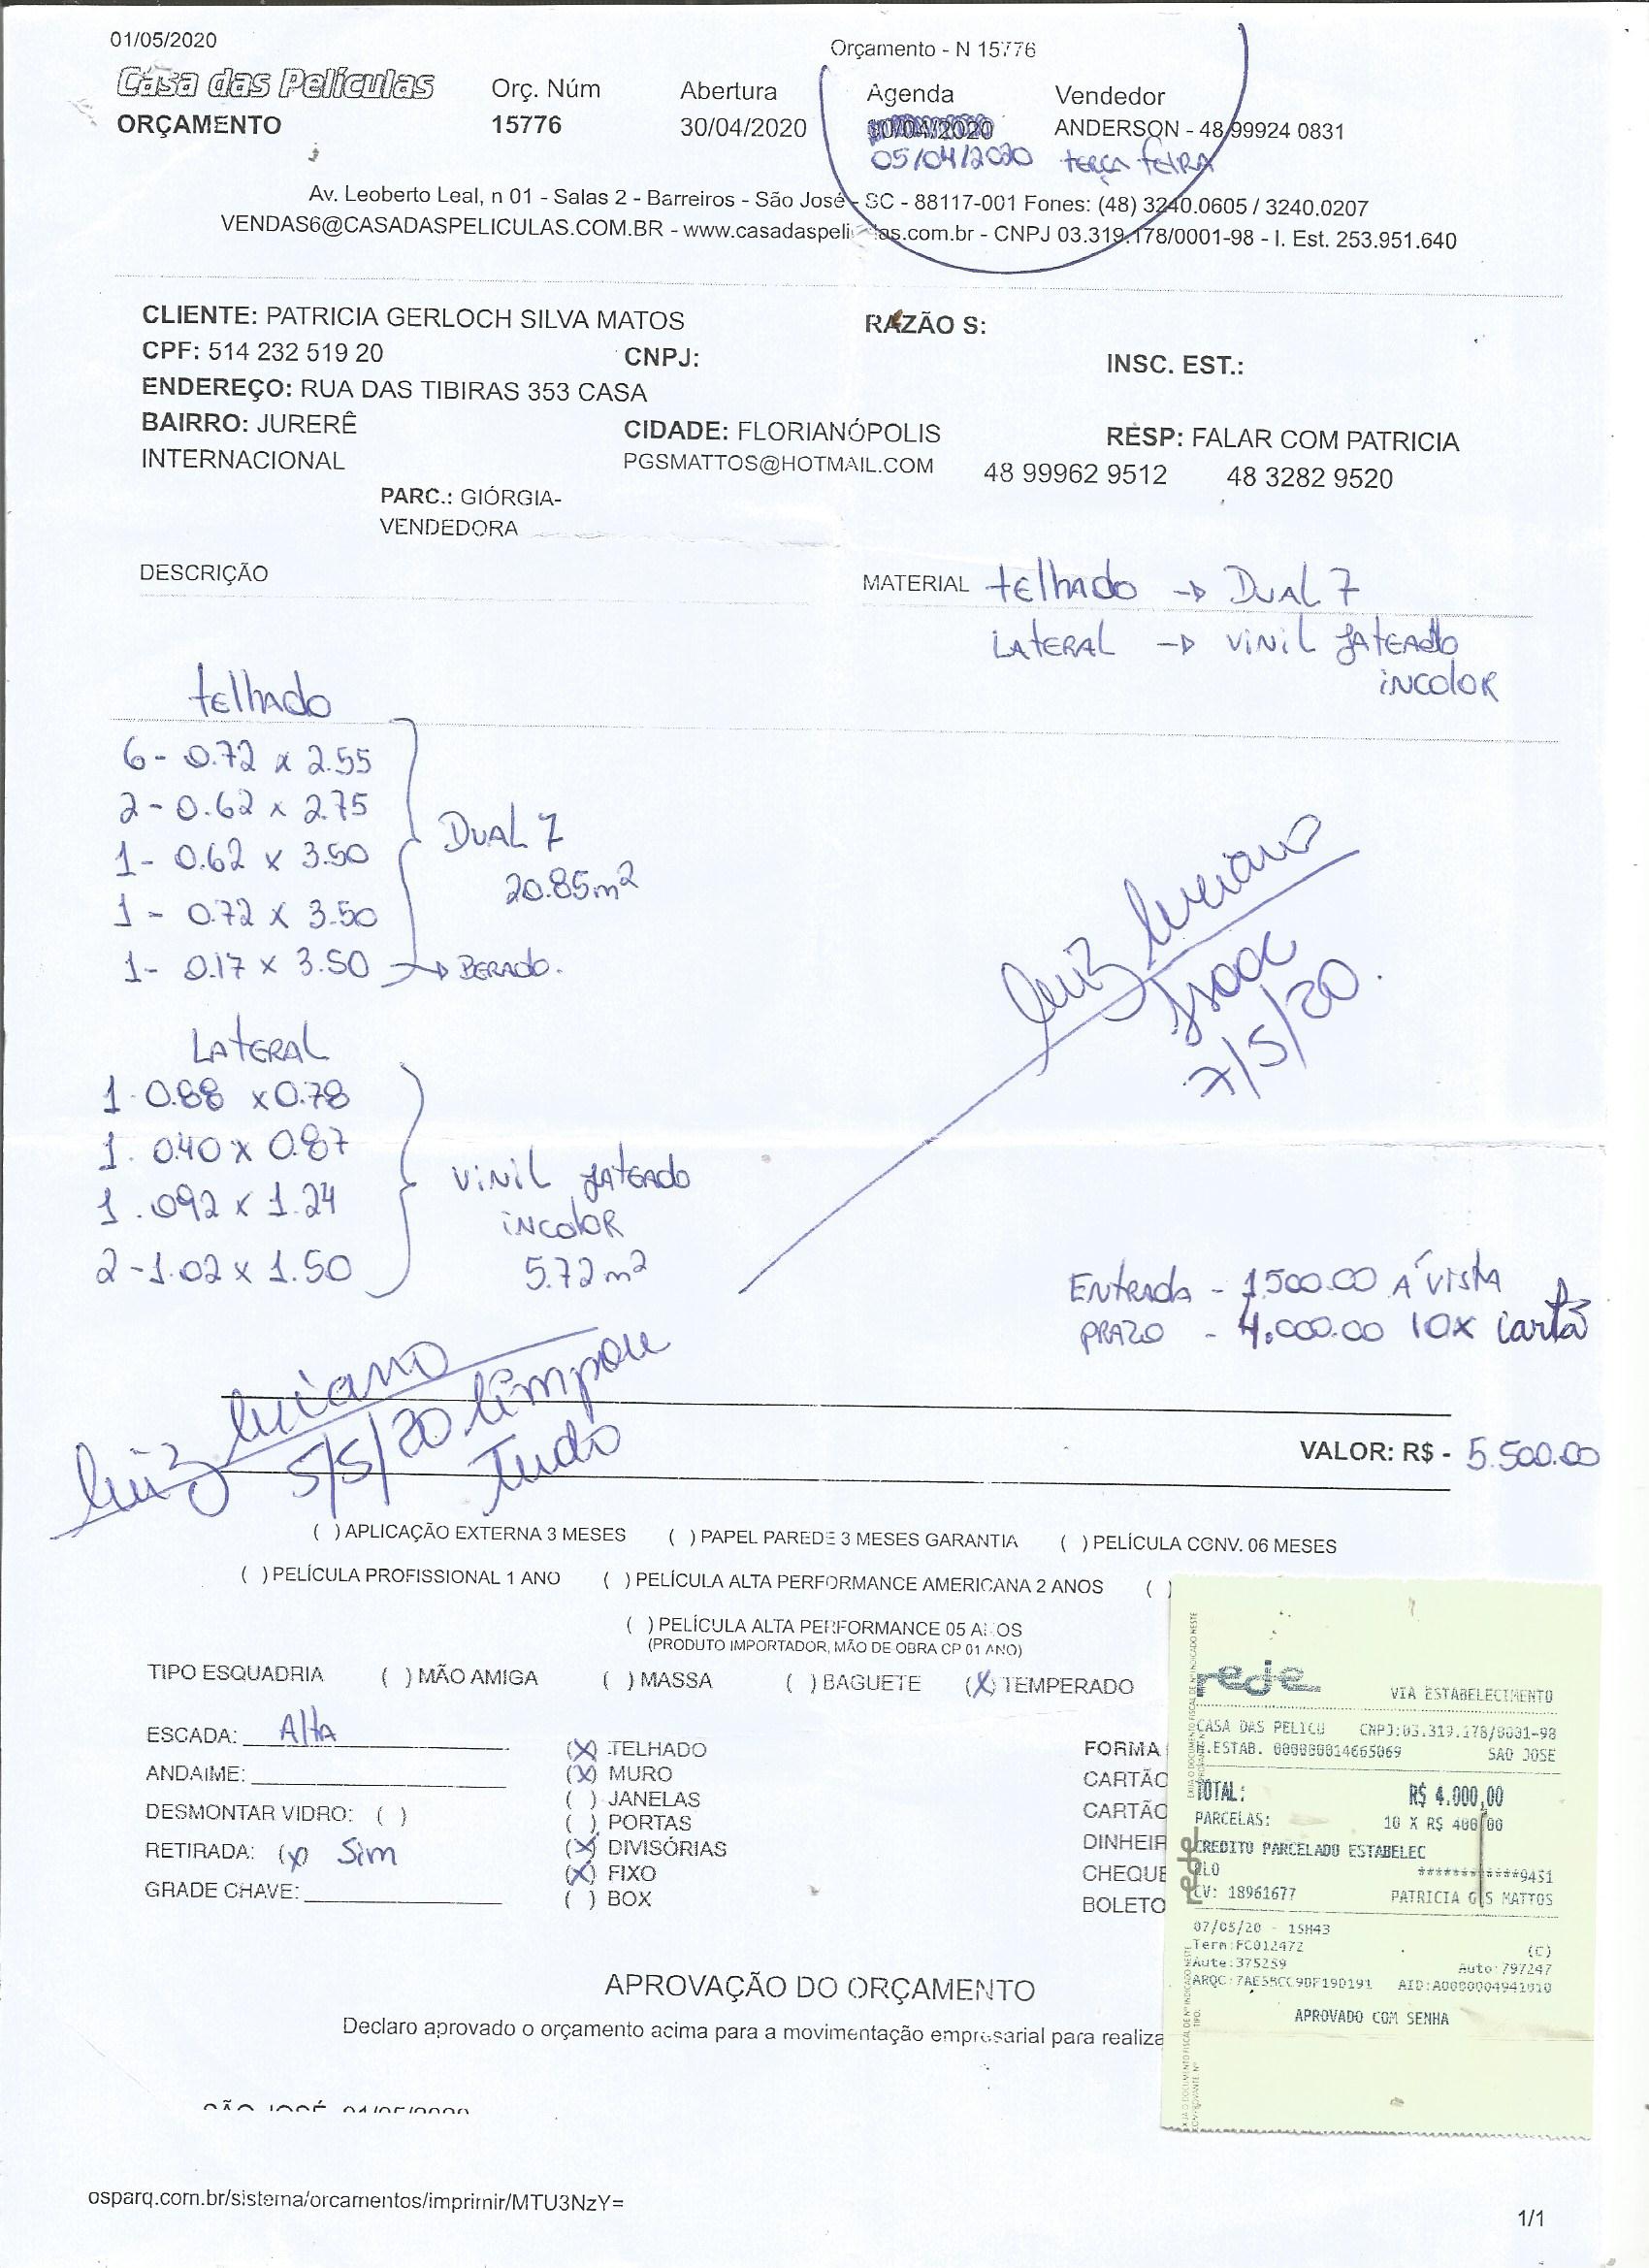 01/05/2020
Orçamento - N 15776
Casa das Películas
Orç. Núm
Abertura
Agenda
Vendedor
ORÇAMENTO
15776
30/04/2020
ANDERSON - 48 99924 0831
05/04/2020 terça feira
Av. Leoberto Leal, n 01 - Salas 2 - Barreiros - São José - SC - 88117-001 Fones: (48) 3240.0605 / 3240.0207
VENDAS6@CASADASPELICULAS.COM.BR - www.casadaspeliculas.com.br - CNPJ 03.319.178/0001-98 - I. Est. 253.951.640
CLIENTE: PATRICIA GERLOCH SILVA MATOS
RAZÃO S:
CPF: 514 232 519 20
CNPJ:
INSC. EST.:
ENDEREÇO: RUA DAS TIBIRAS 353 CASA
BAIRRO: JURERÊ
INTERNACIONAL
CIDADE: FLORIANÓPOLIS
RESP: FALAR COM PATRICIA
PGSMATTOS@HOTMAIL.COM
48 99962 9512
48 3282 9520
PARC.: GIÓRGIA-
VENDEDORA
DESCRIÇÃO
MATERIAL telhado → Dual 7
Lateral → vinil jateado
incolor
telhado
6 - 0.72 x 2.55
2 - 0.62 x 2.75
1 - 0.62 x 3.50
1 - 0.72 x 3.50
1 - 0.17 x 3.50 → Berado.
Dual 7
20.85 m²
Luiz Luciano
Isaac
7/5/20.
Lateral
1 - 0.88 x 0.78
1. 040 x 0.87
1. 092 x 1.24
2 - 1.02 x 1.50
vinil jateado
incolor
5.72 m²
Entrada - 1.500.00 Á vista
Prazo - 4.000.00 10x cartã
Luiz Luciano
5/5/20 limpou
tudo
VALOR: R$ - 5.500.00
( ) APLICAÇÃO EXTERNA 3 MESES ( ) PAPEL PAREDE 3 MESES GARANTIA ( ) PELÍCULA CONV. 06 MESES
( ) PELÍCULA PROFISSIONAL 1 ANO ( ) PELÍCULA ALTA PERFORMANCE AMERICANA 2 ANOS ( )
( ) PELÍCULA ALTA PERFORMANCE 05 ANOS
(PRODUTO IMPORTADOR, MÃO DE OBRA CP 01 ANO)
TIPO ESQUADRIA ( ) MÃO AMIGA ( ) MASSA ( ) BAGUETE (X) TEMPERADO
ESCADA: Alta
ANDAIME:
DESMONTAR VIDRO: ( )
RETIRADA: (x) Sim
GRADE CHAVE:
(X) TELHADO
(X) MURO
( ) JANELAS
( ) PORTAS
(X) DIVISÓRIAS
(X) FIXO
( ) BOX
FORMA
CARTÃO
CARTÃO
DINHEIR
CHEQUE
BOLETO
rede
VIA ESTABELECIMENTO
CASA DAS PELICU CNPJ:03.319.178/0001-98
N.ESTAB. 000000014665069 SAO JOSE
TOTAL: R$ 4.000,00
PARCELAS: 10 X R$ 400,00
CREDITO PARCELADO ESTABELEC
ELO ************9451
CV: 18961677 PATRICIA G S MATTOS
07/05/20 - 15H43
Term:PC012472 (C)
Aute:375259 Auto:797247
ARQC:7AE58CC9DF19D191 AID:A0000004941010
APROVADO COM SENHA
rede
APROVAÇÃO DO ORÇAMENTO
Declaro aprovado o orçamento acima para a movimentação empresarial para realiza
SÃO JOSÉ, 01/05/2020
osparq.com.br/sistema/orcamentos/imprimir/MTU3NzY=
1/1